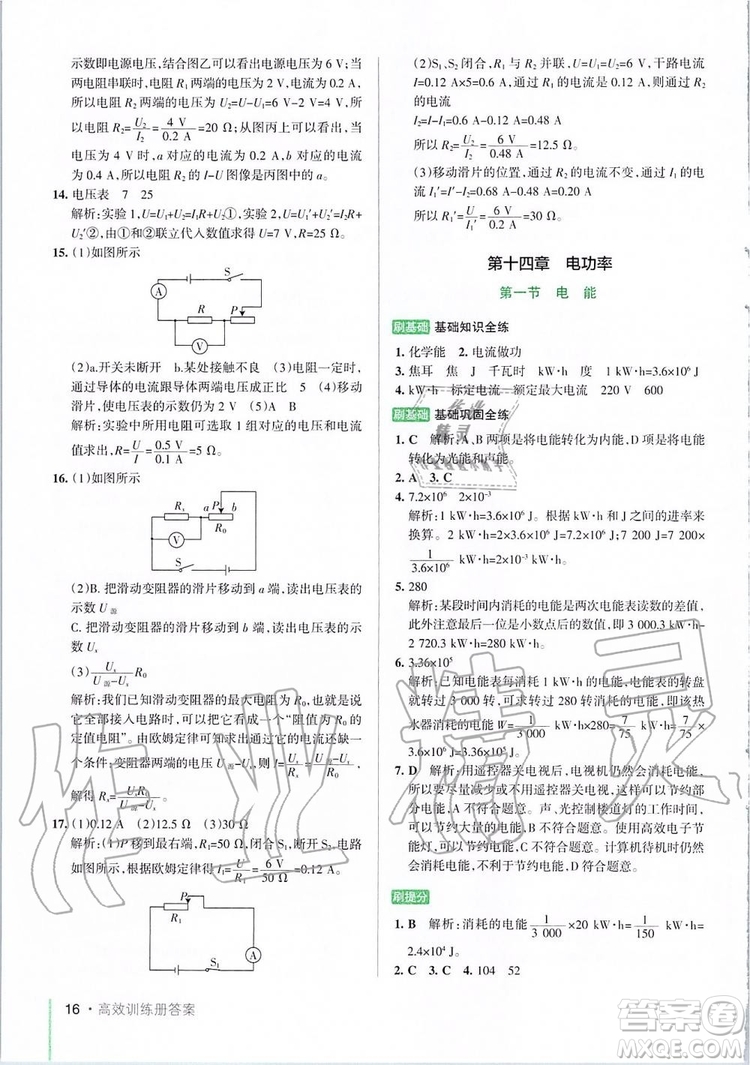 示数即电源电压，结合图乙可以看出电源电压为 6 V；当
两电阻串联时，电阻 R₁ 两端的电压为 2 V，电流为 0.2 A，
所以电阻 R₂ 两端的电压为 U₂=U-U₁=6 V-2 V=4 V，
所以电阻 R₂=U₂/I₂=4 V/0.2 A=20 Ω；从图丙上可以看出，当
电压为 4 V 时，a 对应的电流为 0.2 A，b 对应的电流为
0.4 A，所以电阻 R₂ 的 I-U 图像是丙图中的 a。
14. 电压表 7 25
解析：实验 1，U=U₁+U₂=I₁R+U₂①，实验 2，U=U₁′+U₂′=I₂R+
U₂′②，由①和②联立代入数值求得 U=7 V，R=25 Ω。
15. (1)如图所示
A
S
R
P
V
(2)a.开关未断开 b.某处接触不良 (3)电阻一定时，
通过导体的电流跟导体两端电压成正比 5 (4)移动
滑片，使电压表的示数仍为 2 V (5)A B
解析：实验中所用电阻可选取 1 组对应的电压与电流
值，求出电阻：R=U/I=0.5 V/0.1 A=5 Ω。
16. (1)如图所示
Rₓ a P b
R₀
V
S
(2)B. 把滑动变阻器的滑片移动到 a 端，读出电压表的
示数 U源
C. 把滑动变阻器的滑片移动到 b 端，读出电压表的
示数 Uₓ
(3)Uₓ/(U源-Uₓ)R₀
解析：我们已知滑动变阻器的最大电阻为 R₀，将它的
全部接入电路时，就可以得到一个“阻值为 R₀ 的
定值电阻”。由欧姆定律可以知道求电流还缺一个
条件：变阻器两端的电压 U源-Uₓ，则 I=Uₓ/Rₓ=(U源-Uₓ)/R₀，
解得：Rₓ=UₓR₀/(U源-Uₓ)。
17. (1)0.12 A (2)12.5 Ω (3)30 Ω
解析：(1)P 移到最右端，R₁=50 Ω，闭合 S₁，断开 S₂，电路
如图所示，根据欧姆定律得 I₁=U/R₁=6 V/50 Ω=0.12 A。
P
R₁
S₁
A
16 · 高效训练册答案
(2)S₁、S₂ 闭合，R₁ 与 R₂ 并联，U=6 V，干路电流
I=0.12 A×5=0.6 A，通过 R₁ 的电流为 0.12 A，通过 R₂
的电流
I₂=I-I₁=0.6 A-0.12 A=0.48 A
所以 R₂=U/I₂=6 V/0.48 A=12.5 Ω。
(3)移动滑片的位置，通过 R₂ 的电流不变，通过 R₁ 的电流
I₁′=I′-I₂=0.68 A-0.48 A=0.20 A
所以 R₁′=U/I₁′=6 V/0.20 A=30 Ω。
第十四章 电功率
第一节 电 能
刷基础 基础知识全练
1. 化学能 2. 电流做功
3. 焦耳 焦 J 千瓦时 kW·h 度 kW·h
4. kW·h 标定电流 额定最大电流 220 V 600
刷基础 基础巩固全练
1. C 解析：A、B 两项是将电能转化为内能，D 项是将电能
转化为光能和声能。
2. A 3. C
4. 7.2×10⁶ 2×10⁻³
解析：1 kW·h=3.6×10⁶ J。根据 kW·h 和 J 之间的进率来
换算。2 kW·h=2×3.6×10⁶ J=7.2×10⁶ J；7 200 J=7 200×
1/(3.6×10⁶) kW·h=2×10⁻³ kW·h。
5. 280
解析：某段时间内消耗的电能是两次电能表读数的差值，
此外注意最后一位是小数点后的数值，即 3 000.3 kW·h-
2 720.3 kW·h=280 kW·h。
6. 3.36×10⁵
解析：已知电能表每消耗 1 kW·h 的电能，电能表的转盘
就转过 3 000 转，可求转过 280 转消耗的电能，即该热
水器消耗的电能 W=1/3 000 kW·h×280=7/75 kW·h=7/75×
3.6×10⁶ J=3.36×10⁵ J。
7. D 解析：用遥控器关电视后，电视机仍然会消耗电能，
所以要尽量减少或不用遥控器关电视，这样可以节约部
分电能，A 不符合题意。光控楼道灯的工作时间短，可
以节约大量的电能，B 不符合题意。用高效电子节
能灯，可以节约电能，C 不符合题意。计算机待机时仍然会
消耗电能，不利于节约电能，D 符合题意。
刷提分
1. B 解析：消耗的电能 1/3 000×20 kW·h=1/150 kW·h=
2.4×10⁴ J。
2. C 3. C 4. 104 52
作业精灵
答案圈
MXQE.COM